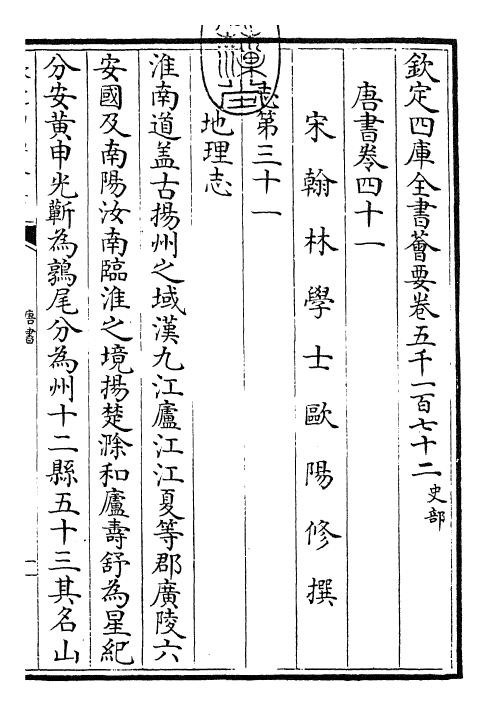 欽定四庫全書薈要卷五千一百七十二 史部
唐書卷四十一
宋翰林學士歐陽修撰
志第三十一
地理志
淮南道蓋古揚州之域漢九江廬江江夏等郡廣陵六
安國及南陽汝南臨淮之境揚楚滁和廬壽舒為星紀
分安黃申光蘄為鶉尾分為州十二縣五十三其名山
唐書